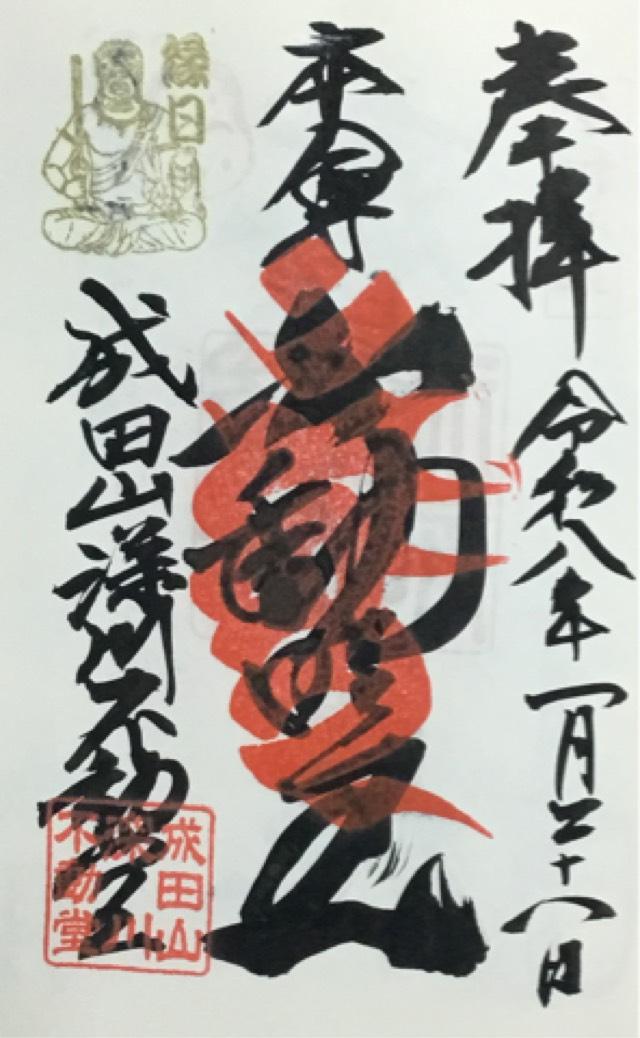 奉拝 令和八年一月二十八日
本尊
不動明王
縁日
成田山深川不動堂
成田山
深川
不動堂